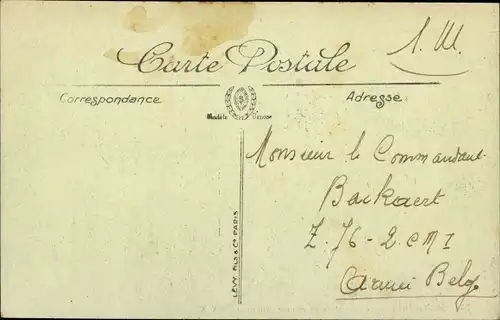 S. M.
Carte Postale
Correspondance
Adresse
Modèle Déposé
Monsieur le Commandant
Backaert
Z. 76 - 2. C M I
Armée Belge
LÉVY, FILS & Cie, PARIS